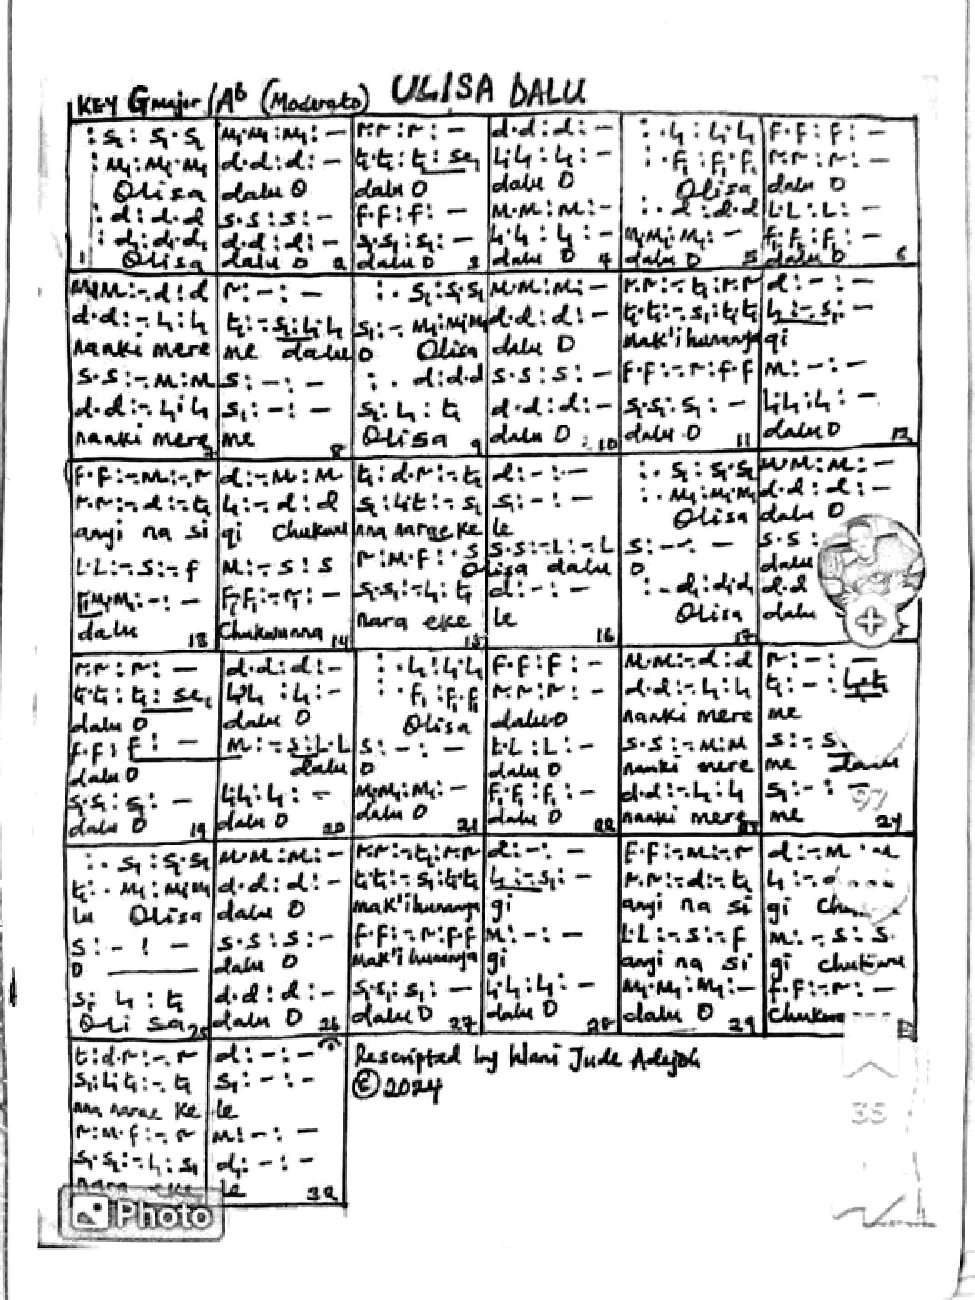 KEY G major/Ab (Moderato) ULISA DALU
: s₁ : s₁.s₁ | m.m : m : – | r.r : r : – | d.d : d : – | : . l₁ : l₁.l₁ | f.f : f : –
: m₁ : m₁.m₁ | d.d : d : – | t₁.t₁ : t₁ : se₁ | l₁.l₁ : l₁ : – | : . f₁ : f₁.f₁ | r.r : r : –
Olisa | dalu O | dalu O | dalu O | Olisa | dalu O
: d : d.d | s.s : s : – | f.f : f : – | m.m : m : – | : . d : d.d | l.l : l : –
: d₁ : d₁.d₁ | d.d : d : – | s₁.s₁ : s₁ : – | l₁.l₁ : l₁ : – | m₁.m₁ : m₁ : – | f₁.f₁ : f₁ : –
1 Olisa | dalu O 2 | dalu O 3 | dalu O 4 | dalu O 5 | dalu O 6
m.m : – . d : d | r : – : – | : . s₁ : s₁.s₁ | m.m : m : – | r.r : – . t₁ : r.r | d : – : –
d.d : – . l₁ : l₁ | t₁ : – . s₁ : l₁.l₁ | s₁ : – . m₁ : m₁.m₁ | d.d : d : – | t₁.t₁ : – . s₁ : t₁.t₁ | l₁ : – . s₁ : –
nanki mere | me dalu | O Olisa | dalu O | mak'ihunanya | gi
s.s : – . m : m | s : – : – | : . d : d.d | s.s : s : – | f.f : – . r : f.f | m : – : –
d.d : – . l₁ : l₁ | s₁ : – : – | s₁ : l₁ : t₁ | d.d : d : – | s₁.s₁ : s₁ : – | l₁.l₁ : l₁ : –
nanki mere 7 | me 8 | Olisa 9 | dalu O 10 | dalu O 11 | dalu O 12
f.f : – . m : – . r | d : – . m : m | t₁ : d.r : – . t₁ | d : – : – | : . s₁ : s₁.s₁ | m.m : m : –
r.r : – . d : – . t₁ | l₁ : – . d : d | s₁ : l₁.t₁ : – . s₁ | s₁ : – : – | : . m₁ : m₁.m₁ | d.d : d : –
anyi na si | gi Chukwu | nna narae ke | le | Olisa | dalu O
l.l : – . s : – . f | m : – . s : s | r : m.f : . s | s.s : – . l : – . l | s : – : – | s.s :
Olisa dalu | O | dalu
m₁.m₁ : – : – | f₁.f₁ : – . r₁ : – | s₁.s₁ : – . l₁ : t₁ | d : – : – | : . d₁ : d₁.d₁ | d.d
dalu 13 | Chukwunna 14 | nara eke 15 | le 16 | Olisa 17 | dalu
r.r : r : – | d.d : d : – | : . l₁ : l₁.l₁ | f.f : f : – | m.m : – . d : d | r : – : –
t₁.t₁ : t₁ : se₁ | l₁.l₁ : l₁ : – | : . f₁ : f₁.f₁ | r.r : r : – | d.d : – . l₁ : l₁ | t₁ : – : l₁.t₁
dalu O | dalu O | Olisa | dalu O | nanki mere | me
f.f : f : – | m : – . s : l.l | s : – : – | l.l : l : – | s.s : – . m : m | s : – . s
dalu O | dalu | O | dalu O | nanki mere | me dalu
s₁.s₁ : s₁ : – | l₁.l₁ : l₁ : – | m₁.m₁ : m₁ : – | f₁.f₁ : f₁ : – | d.d : – . l₁ : l₁ | s₁ : – : –
dalu O 19 | dalu O 20 | dalu O 21 | dalu O 22 | nanki mere 23 | me 24
: . s₁ : s₁.s₁ | m.m : m : – | r.r : – . t₁ : r.r | d : – : – | f.f : – . m : – . r | d : – . m
t₁ : . m₁ : m₁.m₁ | d.d : d : – | t₁.t₁ : – . s₁ : t₁.t₁ | l₁ : – . s₁ : – | r.r : – . d : – . t₁ | l₁ : – . d
lu Olisa | dalu O | mak'ihunanya | gi | anyi na si | gi
s : – : – | s.s : s : – | f.f : – . r : f.f | m : – : – | l.l : – . s : – . f | m : – . s : s
O | dalu O | mak'ihunanya | gi | anyi na si | gi chukwu
s₁ : l₁ : t₁ | d.d : d : – | s₁.s₁ : s₁ : – | l₁.l₁ : l₁ : – | m₁.m₁ : m₁ : – | f.f : – . r : –
Olisa 25 | dalu O 26 | dalu O 27 | dalu O 28 | dalu O 29
t₁ : d.r : – . r | d : – : –
s₁ : l₁.t₁ : – . t₁ | s₁ : – : –
nna narae ke | le
r : m.f : – . r | m : – : –
s₁.s₁ : – . l₁ : s₁ | d₁ : – : –
nara eke | le 32
Rescripted by Wani Jude Adejoh
© 2024
57
35
Photo